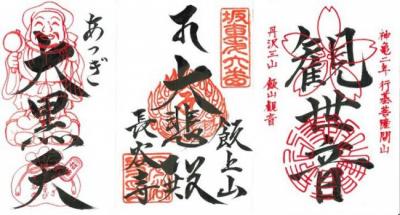 あつぎ
大黒天
坂東第六番
大悲殿
飯上山
長谷寺
神亀二年 行基菩薩開山
観世音
丹沢三山 飯山観音